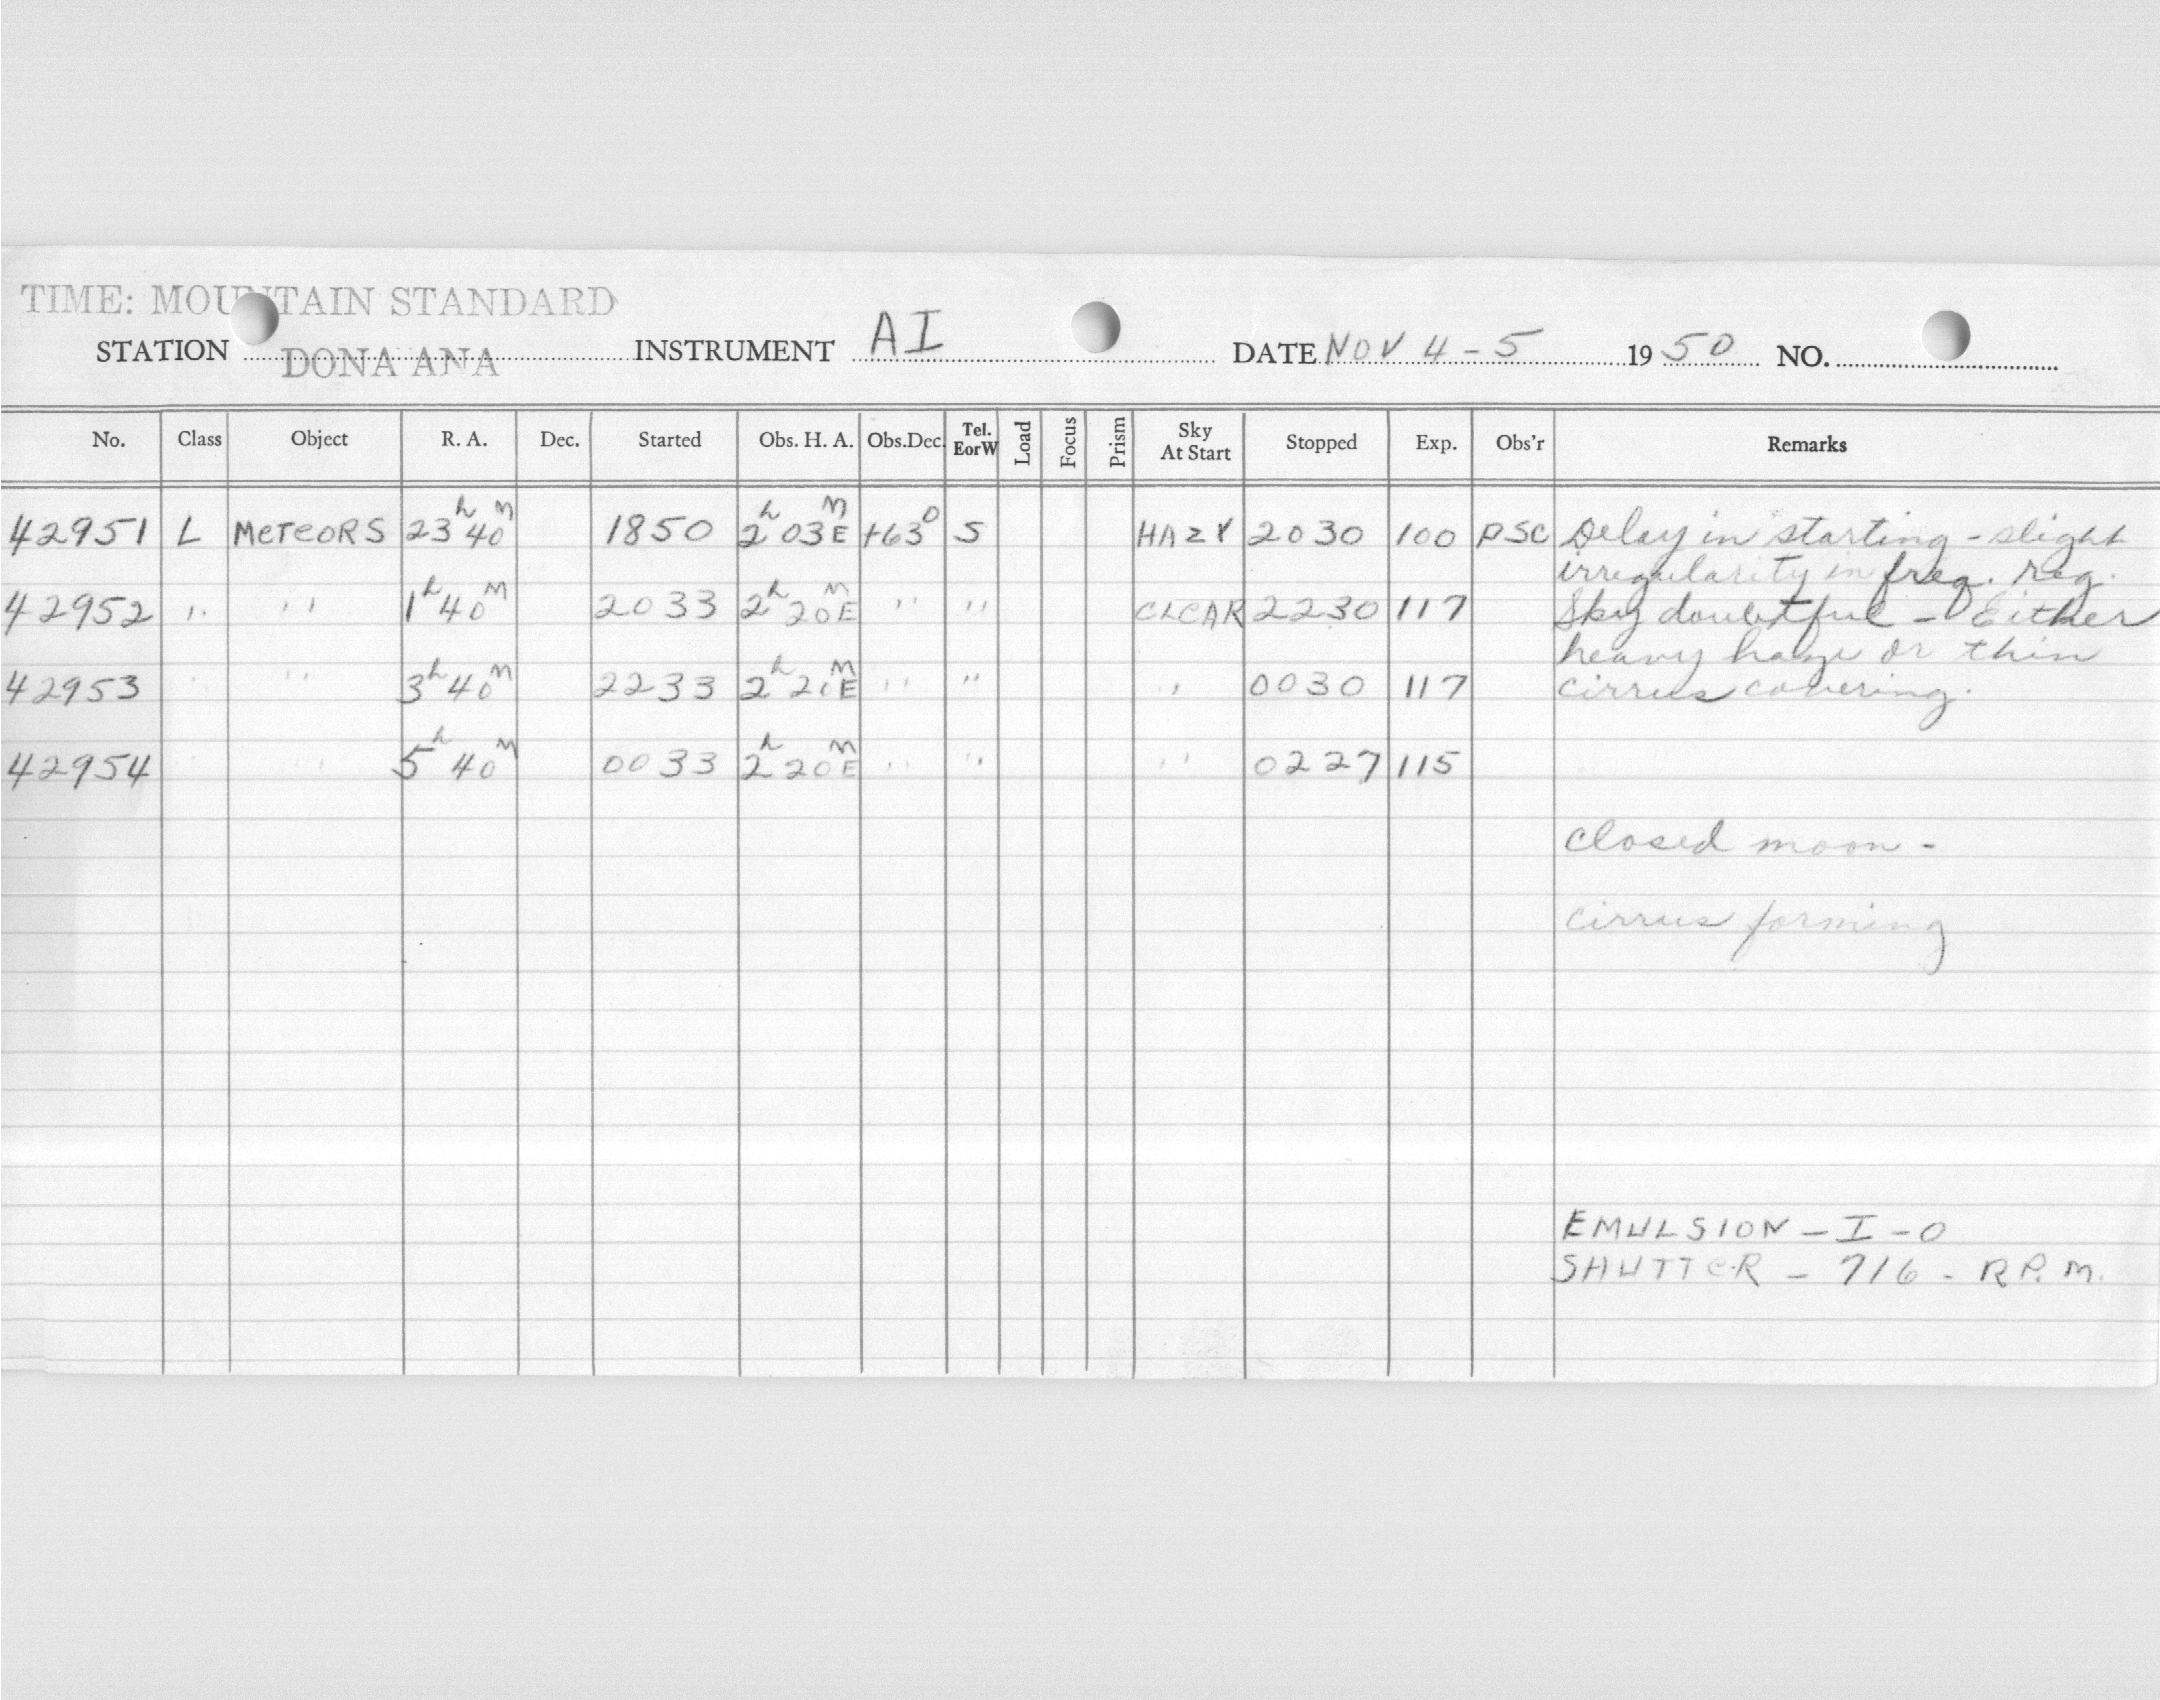 TIME: MOUNTAIN STANDARD
STATION DONA ANA INSTRUMENT AI DATE NOV 4-5 1950 NO.
No. Class Object R. A. Dec. Started Obs. H. A. Obs.Dec. Tel. EorW Load Focus Prism Sky At Start Stopped Exp. Obs'r Remarks
42951 L METEORS 23h 40m 1850 2h 03mE +63° S HAZY 2030 100 PSC Delay in starting - slight
irregularity in freq. reg.
42952 " " 1h 40m 2033 2h 20mE " " CLEAR 2230 117 Sky doubtful - Either
heavy haze or thin
42953 " " 3h 40m 2233 2h 20mE " " " 0030 117 cirrus covering.
42954 " 5h 40m 0033 2h 20mE " " " 0227 115
closed moon -
cirrus forming
EMULSION - I - O
SHUTTER - 716 - R.P.M.